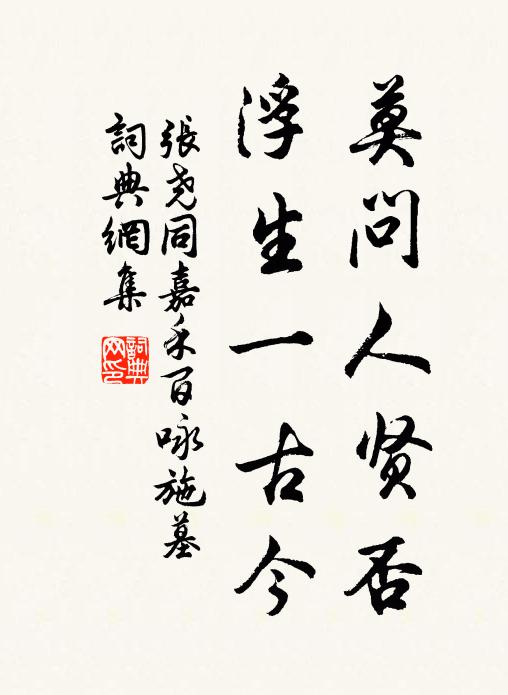 莫问人贤否
浮生一古今
張尧同嘉禾百咏施墓
詞典網集
詞典网印